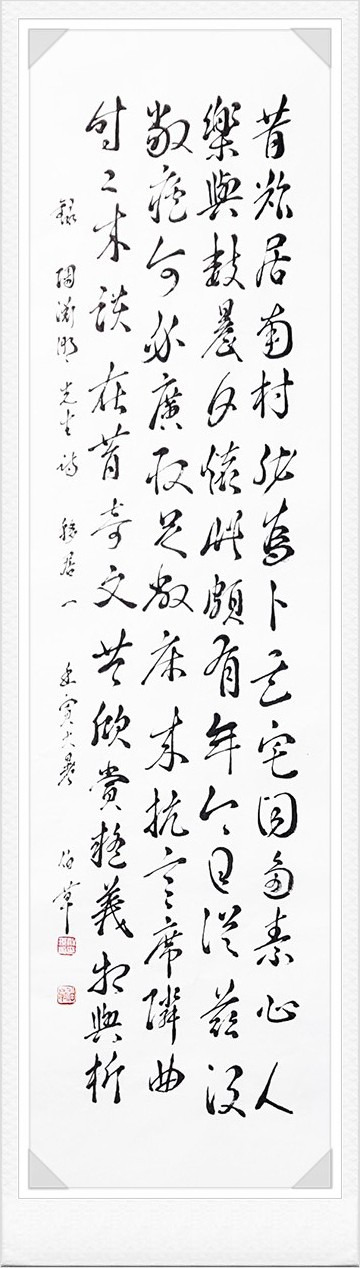 昔欲居南村非為卜其宅聞多素心人
樂與數晨夕懷此頗有年今日從茲役
敝廬何必廣取足敝床来抗言席隣曲
时々来談在昔奇文共欣賞疑義相與析
錄陶渊明先生詩移居一 壬寅大暑